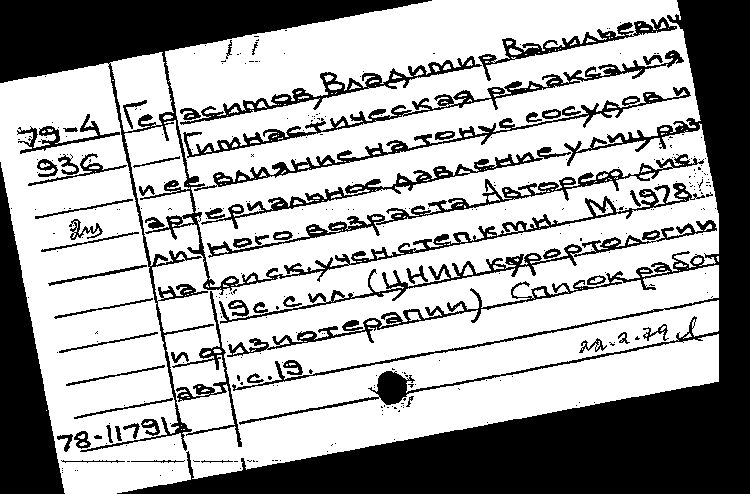 79-4
936
Герасимов, Владимир Васильевич
Гимнастическая релаксация
и ее влияние на тонус сосудов и
артериальное давление у лиц раз
личного возраста Автореф. дис.
на соиск. учен. степ. к.м.н. М., 1978.
19 с. с ил. (ЦНИИ курортологии
и физиотерапии) Список работ
авт.: с. 19.
22.2.79
78-11791а